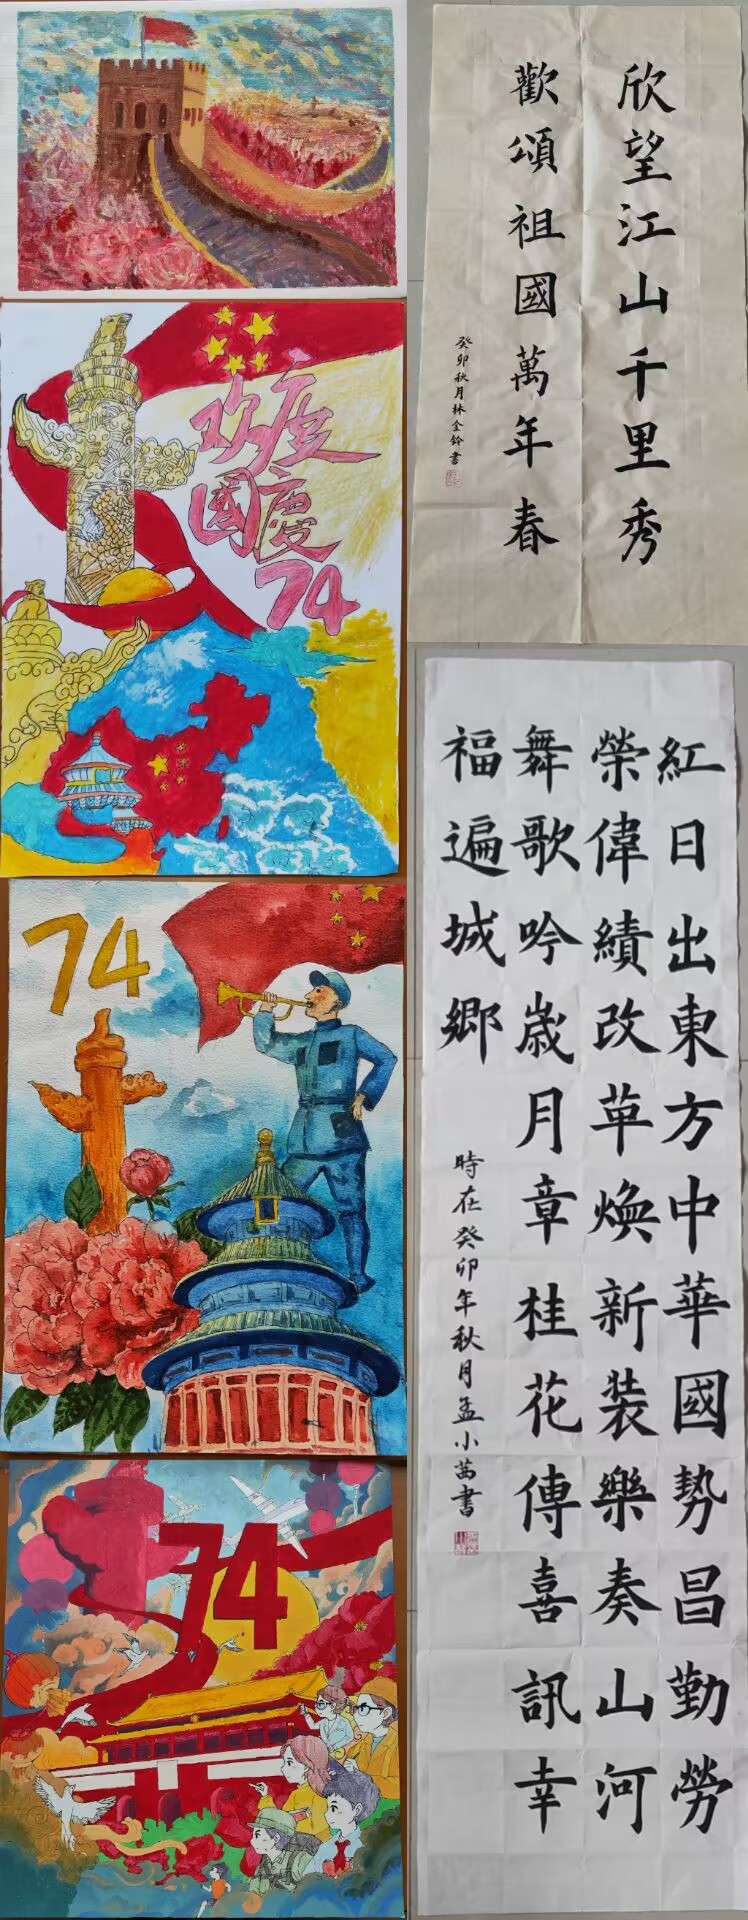 欢度
國慶
74
74
74
欣望江山千里秀
歡頌祖國萬年春
癸卯秋月林全鈴書
紅日出東方中華國勢昌勤勞
榮偉績改革煥新装樂奏山河
舞歌吟歲月章桂花傳喜訊幸
福遍城鄉
時在癸卯年秋月孟小茜書